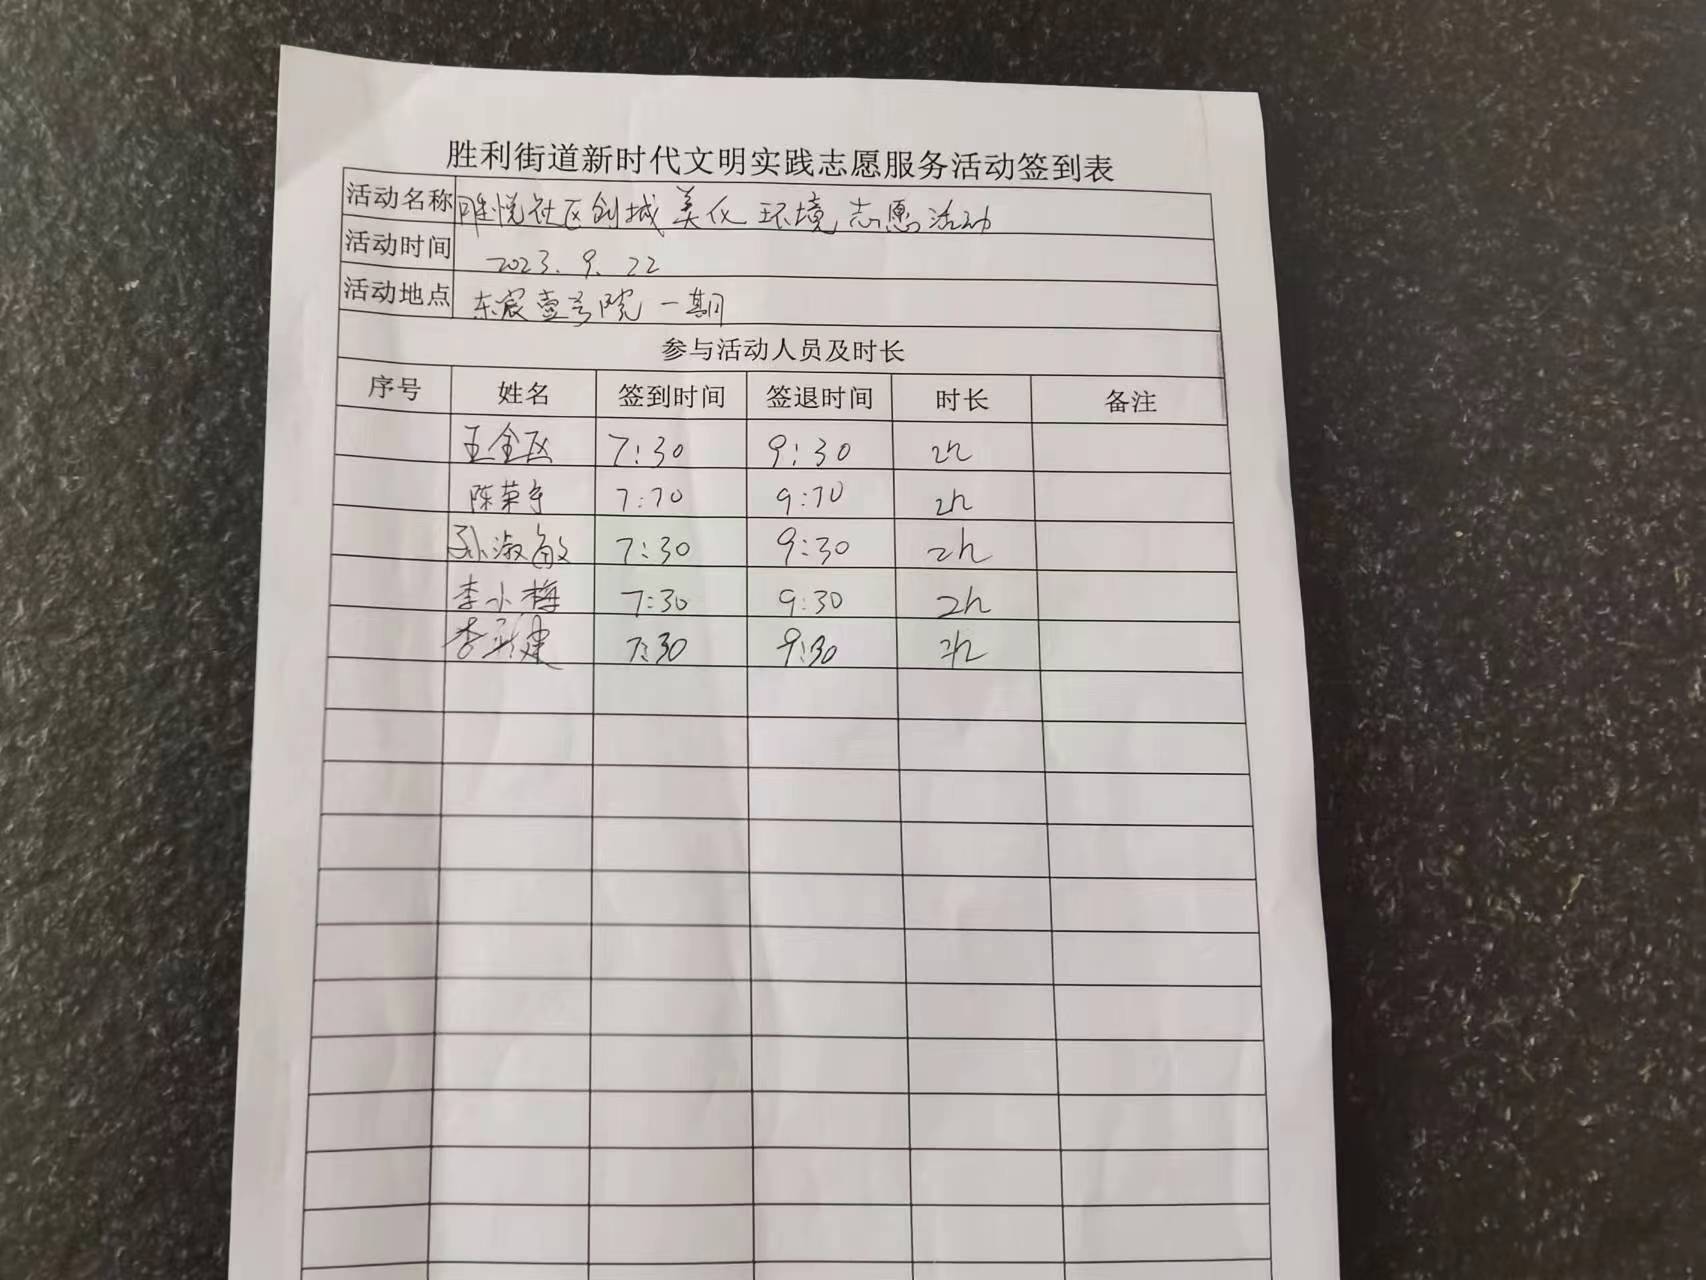 胜利街道新时代文明实践志愿服务活动签到表
活动名称 悦社区创城美化环境志愿活动
活动时间 2023.9.22
活动地点 东宸壹号院一期
参与活动人员及时长
序号 姓名 签到时间 签退时间 时长 备注
王金区 7:30 9:30 2h
陈荣 7:30 9:30 2h
孙淑敏 7:30 9:30 2h
李小梅 7:30 9:30 2h
李建 7:30 9:30 2h